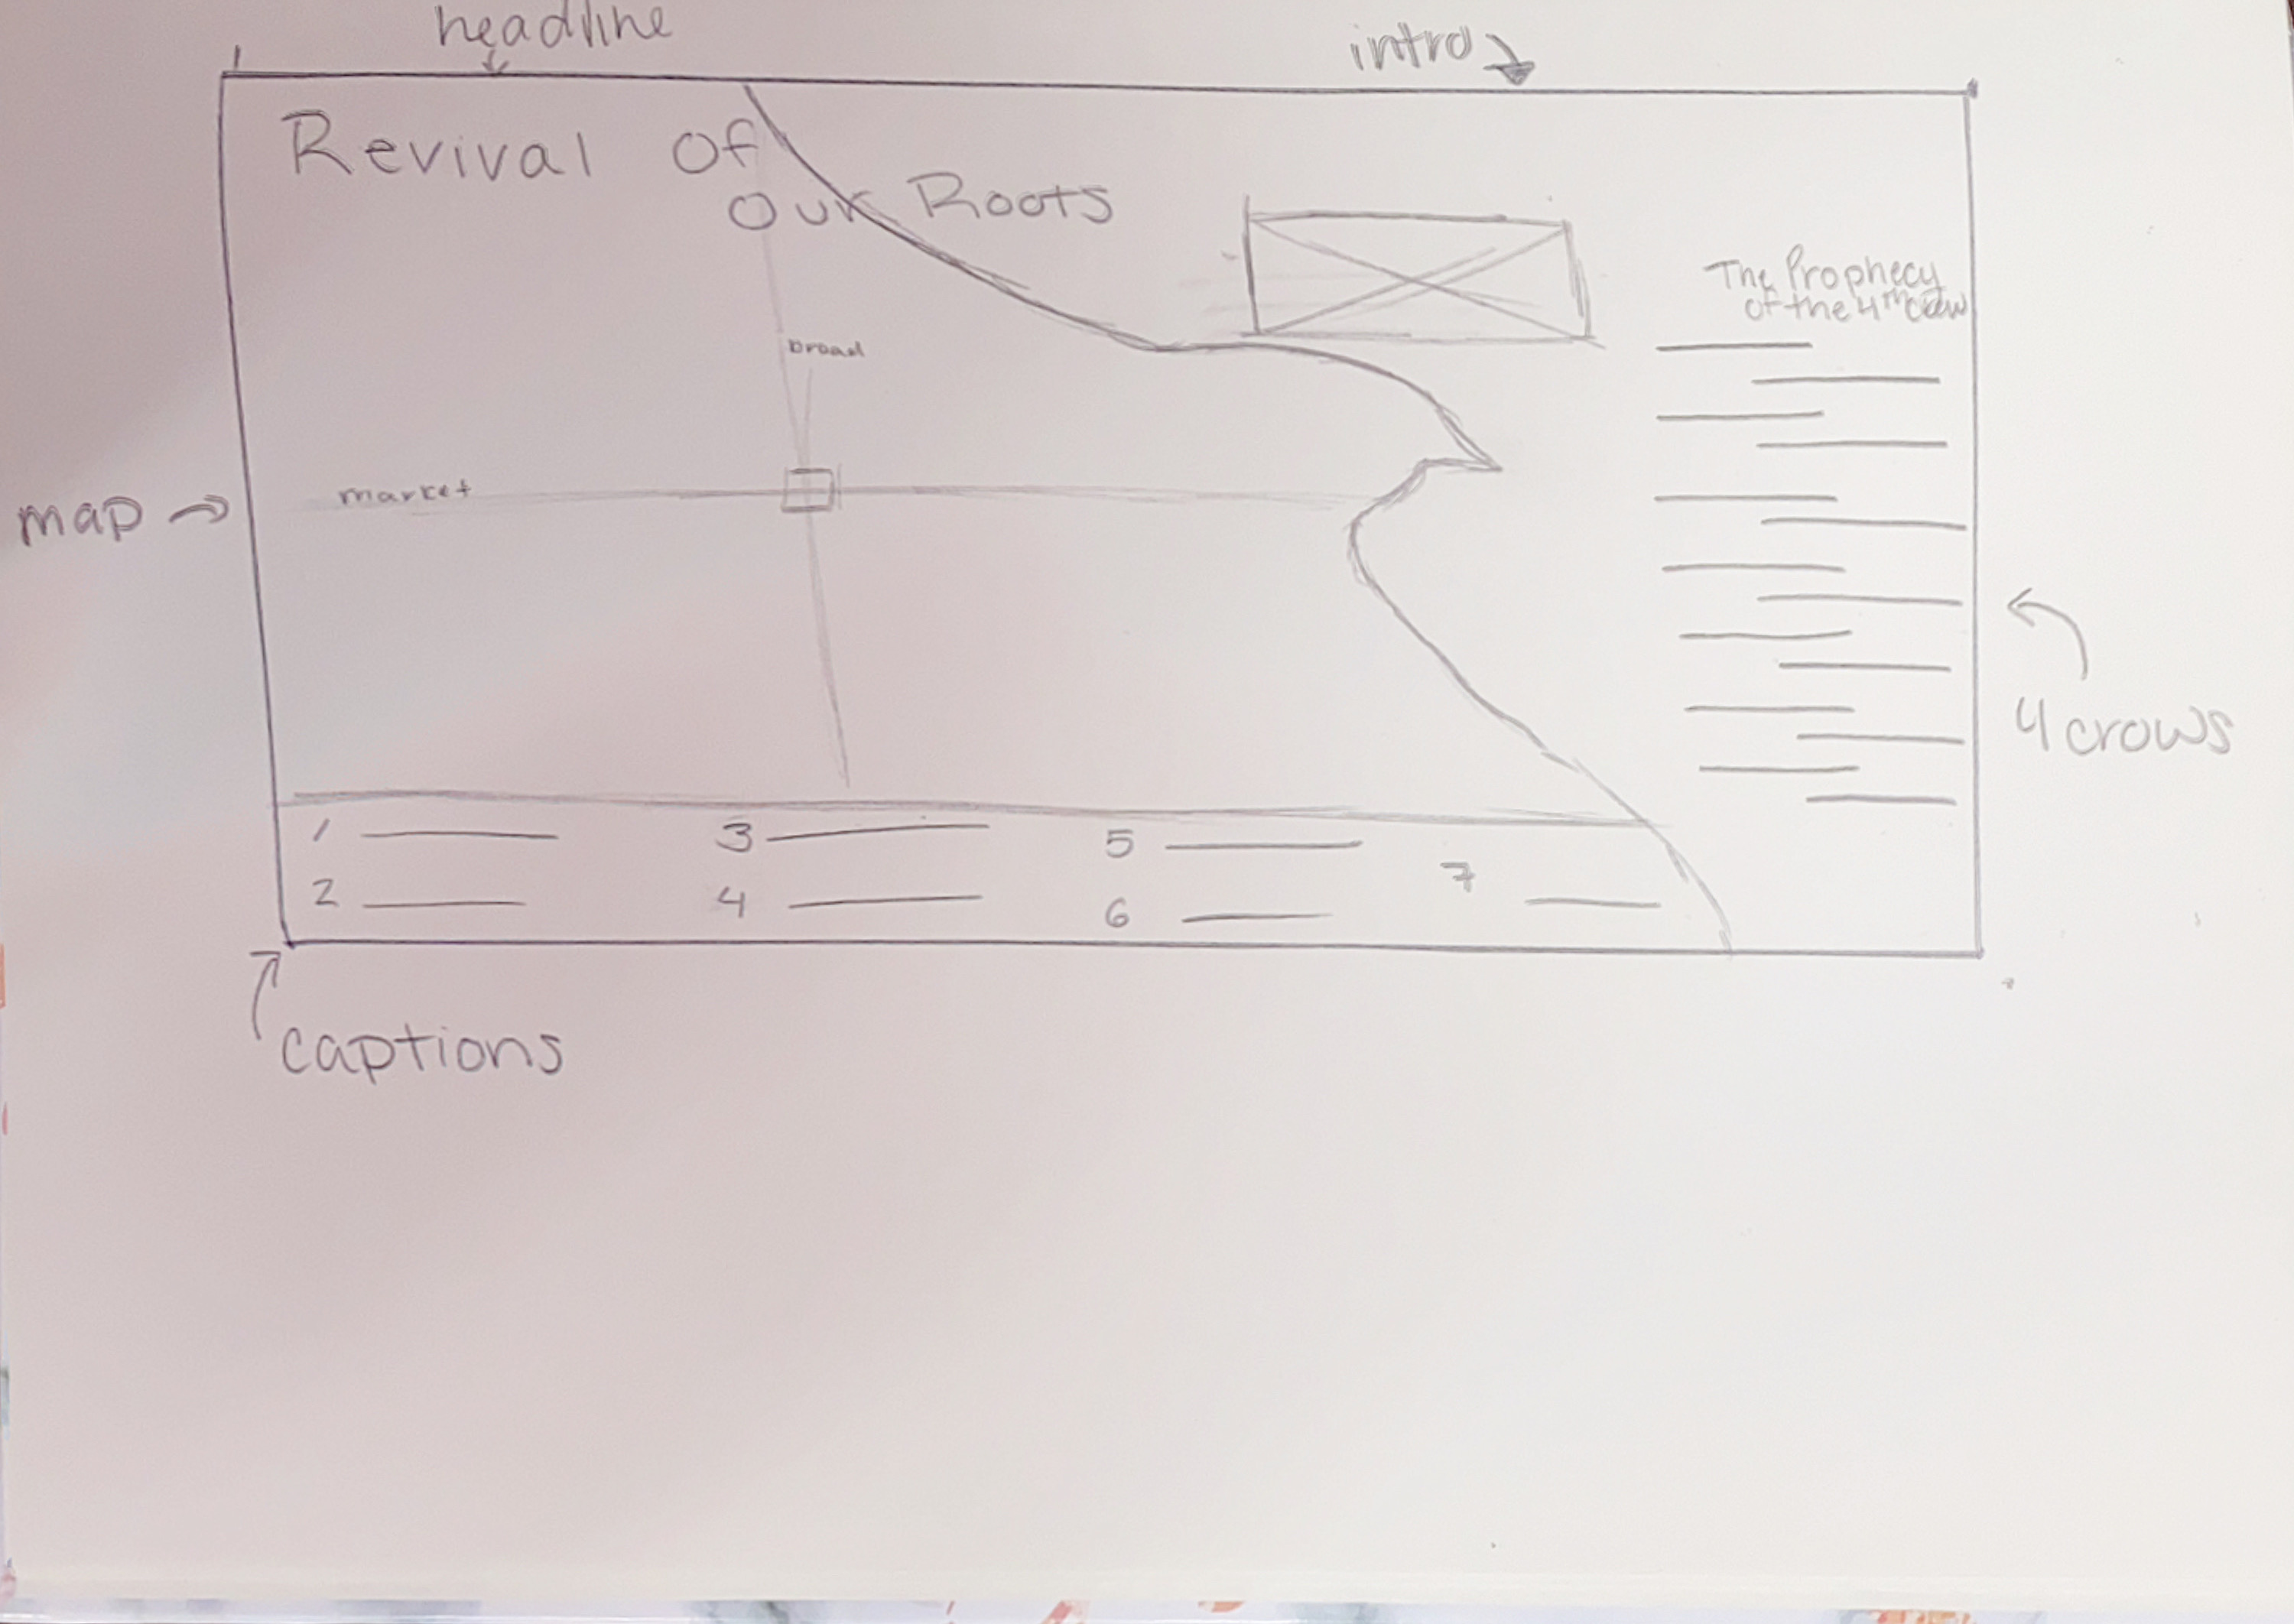 headline
intro
Revival Of
Our Roots
The Prophecy
of the 4th Crow
broad
market
map
4 crows
1
3
5
7
2
4
6
captions